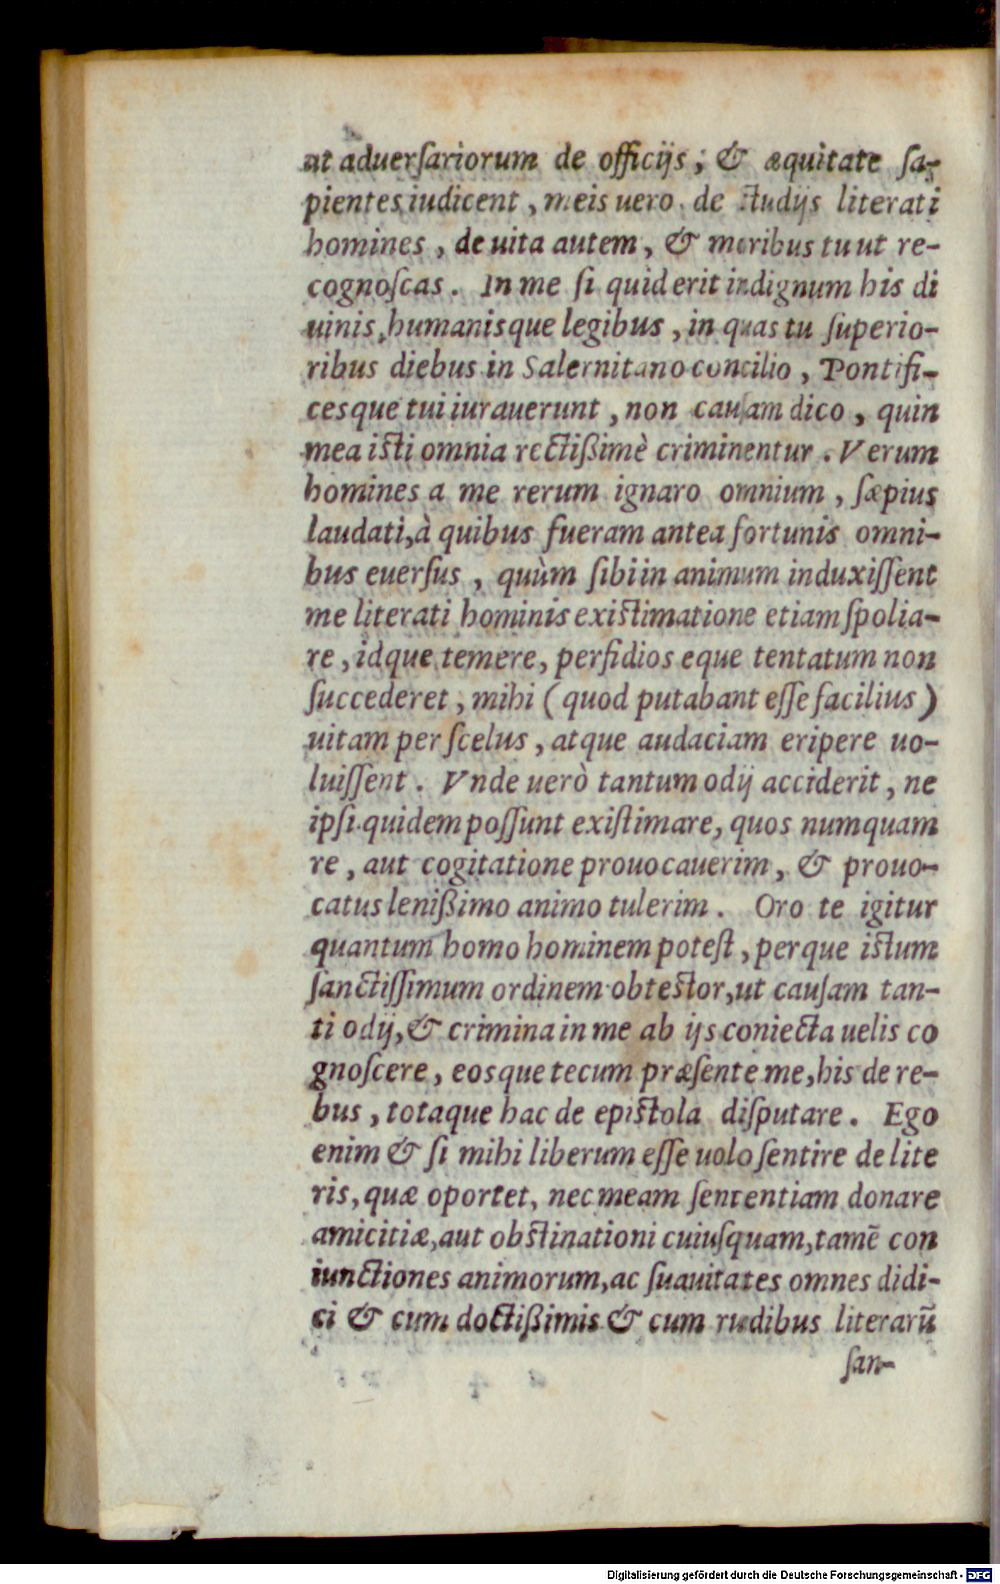 ut aduerſariorum de officijs; & æquitate ſa-
pientes iudicent, meis uero de ſtudijs literati
homines, de uita autem, & moribus tu ut re-
cognoſcas. In me ſi quid erit indignum his di
uinis, humanisque legibus, in quas tu ſuperio-
ribus diebus in Salernitano concilio, Pontifi-
cesque tui iurauerunt, non cauſam dico, quin
mea iſti omnia rectißimè criminentur. Verum
homines a me rerum ignaro omnium, ſæpius
laudati, à quibus fueram antea fortunis omni-
bus euerſus, quùm ſibi in animum induxiſſent
me literati hominis exiſtimatione etiam ſpolia-
re, idque temere, perfidioseque tentatum non
ſuccederet, mihi (quod putabant eſſe facilius)
uitam per ſcelus, atque audaciam eripere uo-
luiſſent. Vnde uerò tantum odij acciderit, ne
ipſi quidem poſſunt exiſtimare, quos numquam
re, aut cogitatione prouocauerim, & prouo-
catus lenißimo animo tulerim. Oro te igitur
quantum homo hominem poteſt, perque iſtum
ſanctiſſimum ordinem obteſtor, ut cauſam tan-
ti odij, & crimina in me ab ijs coniecta uelis co
gnoſcere, eosque tecum præſente me, his de re-
bus, totaque hac de epiſtola diſputare. Ego
enim & ſi mihi liberum eſſe uolo ſentire de lite
ris, quæ oportet, nec meam ſententiam donare
amicitiæ, aut obſtinationi cuiuſquam, tamẽ con
iunctiones animorum, ac ſuauitates omnes didi-
ci & cum doctißimis & cum rudibus literarũ
ſan-
Digitalisierung gefördert durch die Deutsche Forschungsgemeinschaft - DFG